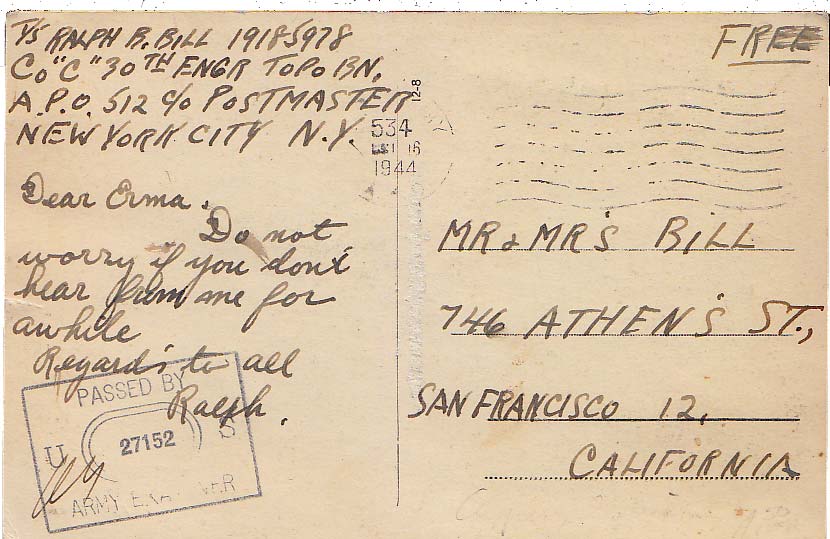 T/5 RALPH B. BILL 19185978
Co "C" 30TH ENGR TOPO BN,
A.P.O. 512 c/o POSTMASTER
NEW YORK CITY N.Y.
FREE
12-8
534
16
1944
Dear Erma.
Do not
worry if you don't
hear from me for
awhile
Regards to all
Ralph.
PASSED BY
U S
27152
ARMY EXAMINER
MR & MR'S BILL
746 ATHEN'S ST.,
SAN FRANCISCO 12,
CALIFORNIA